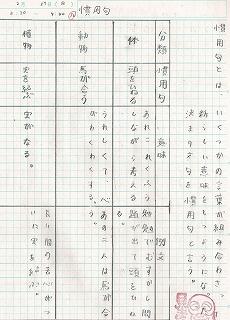 慣用句
慣用句とは、いくつかの言葉が組み合わさっ
新しい意味をもつようになん
決まり文句を言う。
分類 慣用句 意味 例文
体 頭をひねる あれこれくふう
しながら考える
勉強でむずかしい問
題が出て頭をひね
る。
動物 馬が合う うれしくて、
わくわくする。
あの二人は馬が合
う。
植物 実を結ぶ 実がなる。
長い間の
いに実を結ぶ。